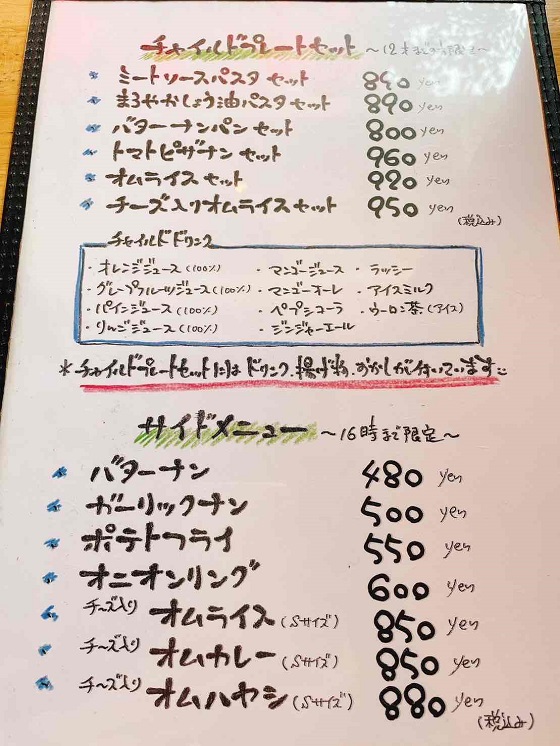 チャイルドプレートセット ～12才まで限定～
ミートソースパスタセット 890 yen
まろやかしょう油パスタセット 890 yen
バターナンパンセット 800 yen
トマトピザナンセット 960 yen
オムライスセット 920 yen
チーズ入りオムライスセット 950 yen
(税込み)
チャイルドドリンク
・オレンジジュース(100%) ・マンゴージュース ・ラッシー
・グレープフルーツジュース(100%) ・マンゴーオーレ ・アイスミルク
・パインジュース(100%) ・ペプシコーラ ・ウーロン茶(アイス)
・りんごジュース(100%) ・ジンジャーエール
*チャイルドプレートセットにはドリンク、揚げ物、おかしが付いています
サイドメニュー ～16時まで限定～
バターナン 480 yen
ガーリックナン 500 yen
ポテトフライ 550 yen
オニオンリング 600 yen
チーズ入りオムライス(Sサイズ) 850 yen
チーズ入りオムカレー(Sサイズ) 850 yen
チーズ入りオムハヤシ(Sサイズ) 880 yen
(税込み)